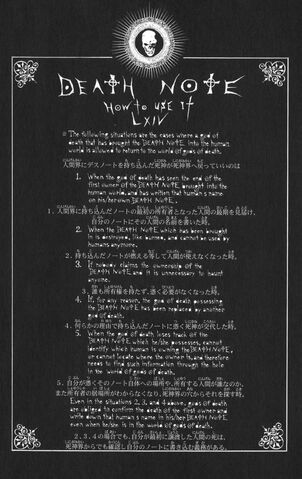 DEATH NOTE
HOW to USE It
LXIV
※ The following situations are the cases where a god of
death that has brought the DEATH NOTE into the human
world is allowed to return to the world of gods of death.
人間界にデスノートを持ち込んだ死神が死神界へ戻っていいのは
1. When the god of death has seen the end of the
first owner of the DEATH NOTE brought into the
human world, and has written that human's name
on his/her own DEATH NOTE.
1．人間界に持ち込んだノートの最初の所有者となった人間の最期を見届け、
自分のノートにその人間の名前を書いた時。
2. When the DEATH NOTE which has been brought
in is destroyed, like burned, and cannot be used by
humans anymore.
2．持ち込んだノートが燃える等して人間が使えなくなった時。
3. If nobody claims the ownership of the
DEATH NOTE and it is unnecessary to haunt
anyone.
3．誰も所有権を持たず、憑く必要がなくなった時。
4. If, for any reason, the god of death possessing
the DEATH NOTE has been replaced by another
god of death.
4．何らかの理由で持ち込んだノートに憑く死神が交代した時。
5. When the god of death loses track of the
DEATH NOTE which he/she possesses, cannot
identify which human is owning the DEATH NOTE,
or cannot locate where the owner is, and therefore
needs to find such information through the hole
in the world of gods of death.
5．自分が憑くそのノート自体への場所や、所有する人間が誰なのか、
また所有者の居場所がわからなくなり、死神界の穴からそれを探す時。
Even in the situations 2, 3, and 4 above, gods of death
are obliged to confirm the death of the first owner and
write down that human's name in his/her DEATH NOTE
even when he/she is in the world of gods of death.
2、3、4の場合でも、自分が最初に譲渡した人間の死は、
死神界からでも確認し自分のノートに書き込む義務がある。